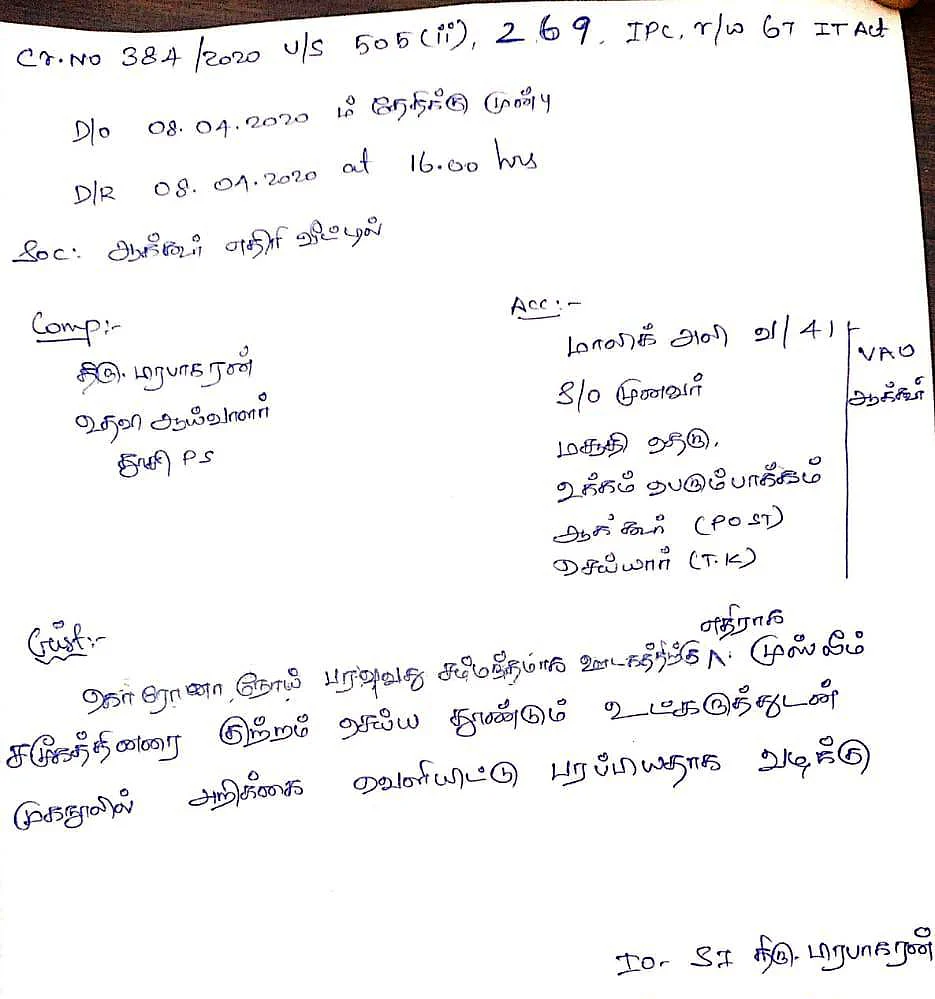 Cr.No 384/2020 U/S 505(ii), 269. IPC, r/w 67 IT Act
D/O 08.04.2020 ம் தேதிக்கு முன்பு
D/R 08.04.2020 at 16.00 hrs
SOC: ஆக்கூர் எதிரி வீட்டில்
Comp:-
திரு. பிரபாகரன்
உதவி ஆய்வாளர்
தூசி PS
Acc:-
மாலிக் அலி வ/41
S/O முனவர்
மசூதி தெரு,
உக்கம் பெரும்பாக்கம்
ஆக்கூர் (POST)
செய்யார் (T.K)
VAO
ஆக்கூர்
Gist:-
கொரோனா நோய் பரவுவது சம்மந்தமாக ஊடகத்திற்கு எதிராக ^. முஸ்லீம்
சமூகத்தினரை குற்றம் செய்ய தூண்டும் உட்கருத்துடன்
முகநூலில் அறிக்கை வெளியிட்டு பரப்பியதாக வழக்கு
IO - SI திரு. பிரபாகரன்